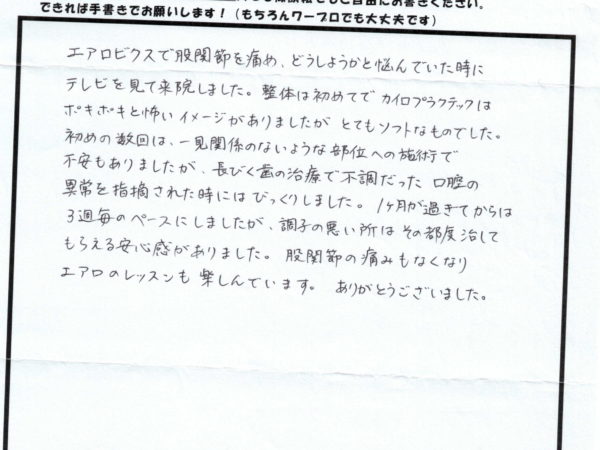 にお書きください。
できれば手書きでお願いします！（もちろんワープロでも大丈夫です）
エアロビクスで股関節を痛め、どうしようかと悩んでいた時に
テレビを見て来院しました。整体は初めてで カイロプラクテックは
ポキポキと怖い イメージがありましたが とてもソフトなものでした。
初めの数回は、一見関係のないような部位への施術で
不安もありましたが、長びく歯の治療で不調だった 口腔の
異常を指摘された時には びっくりしました。1ヶ月が過ぎてからは
3週毎のペースにしましたが、調子の悪い所は その都度治して
もらえる安心感がありました。 股関節の痛みもなくなり
エアロのレッスンも 楽しんでいます。 ありがとうございました。